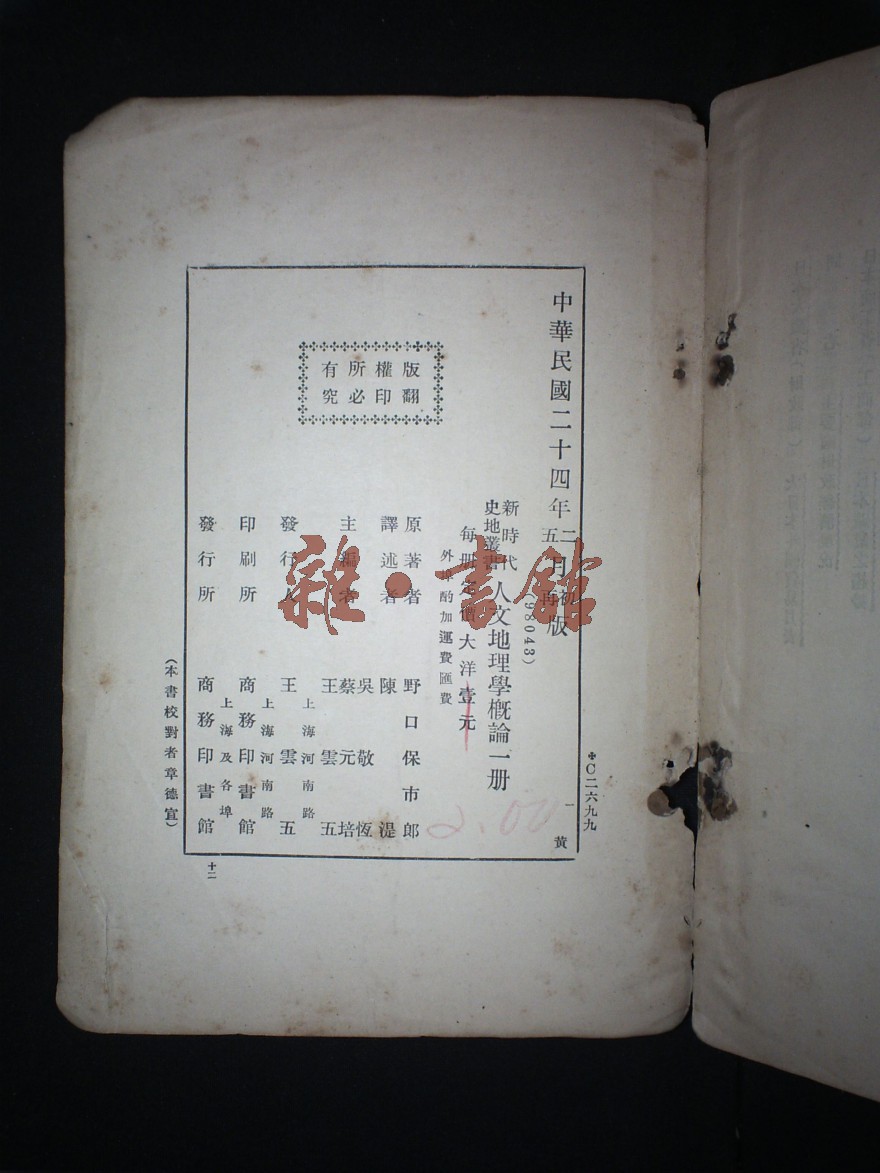 中華民國二十四年二月初版
五再
(98043)
新時代
史地叢書
人文地理學概論一册
每册定價大洋壹元
外埠酌加運費匯費
原著者 野口保市郎
譯述者 陳湜
主編者 吳敬恆
蔡元培
王雲五
發行人 王雲五
上海河南路
印刷所 商務印書館
上海河南路
發行所 商務印書館
上海及各埠
版權所有
翻印必究
(本書校對者章德宣)
C二六九九
一
黃
十二
2.00
雜·書館